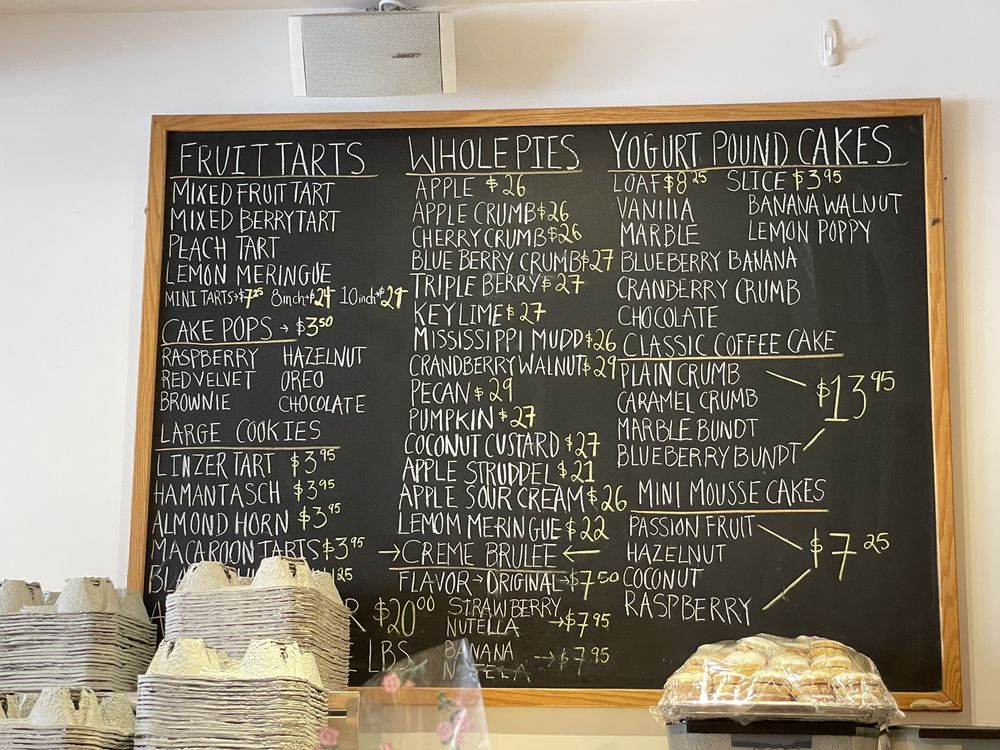 BOSE
FRUIT TARTS
MIXED FRUIT TART
MIXED BERRY TART
PEACH TART
LEMON MERINGUE
MINI TARTS→$7.25 8inch→$24 10inch→$29
CAKE POPS → $3.50
RASPBERRY HAZELNUT
RED VELVET OREO
BROWNIE CHOCOLATE
LARGE COOKIES
LINZER TART $3.95
HAMANTASCH $3.95
ALMOND HORN $3.95
MACAROON TARTS $3.95
$20.00
LBS
WHOLE PIES
APPLE $26
APPLE CRUMB $26
CHERRY CRUMB $26
BLUE BERRY CRUMB $27
TRIPLE BERRY $27
KEY LIME $27
MISSISSIPPI MUDD $26
CRANDBERRY WALNUT $29
PECAN $29
PUMPKIN $27
COCONUT CUSTARD $27
APPLE STRUDDEL $21
APPLE SOUR CREAM $26
LEMOM MERINGUE $22
→CREME BRULEE←
FLAVOR→ORIGINAL→$7.50
STRAWBERRY
NUTELLA →$7.95
BANANA
NUTELA →$7.95
YOGURT POUND CAKES
LOAF $8.25 SLICE $3.95
VANILLA BANANA WALNUT
MARBLE LEMON POPPY
BLUEBERRY BANANA
CRANBERRY CRUMB
CHOCOLATE
CLASSIC COFFEE CAKE
PLAIN CRUMB
CARAMEL CRUMB $13.95
MARBLE BUNDT
BLUEBERRY BUNDT
MINI MOUSSE CAKES
PASSION FRUIT
HAZELNUT $7.25
COCONUT
RASPBERRY